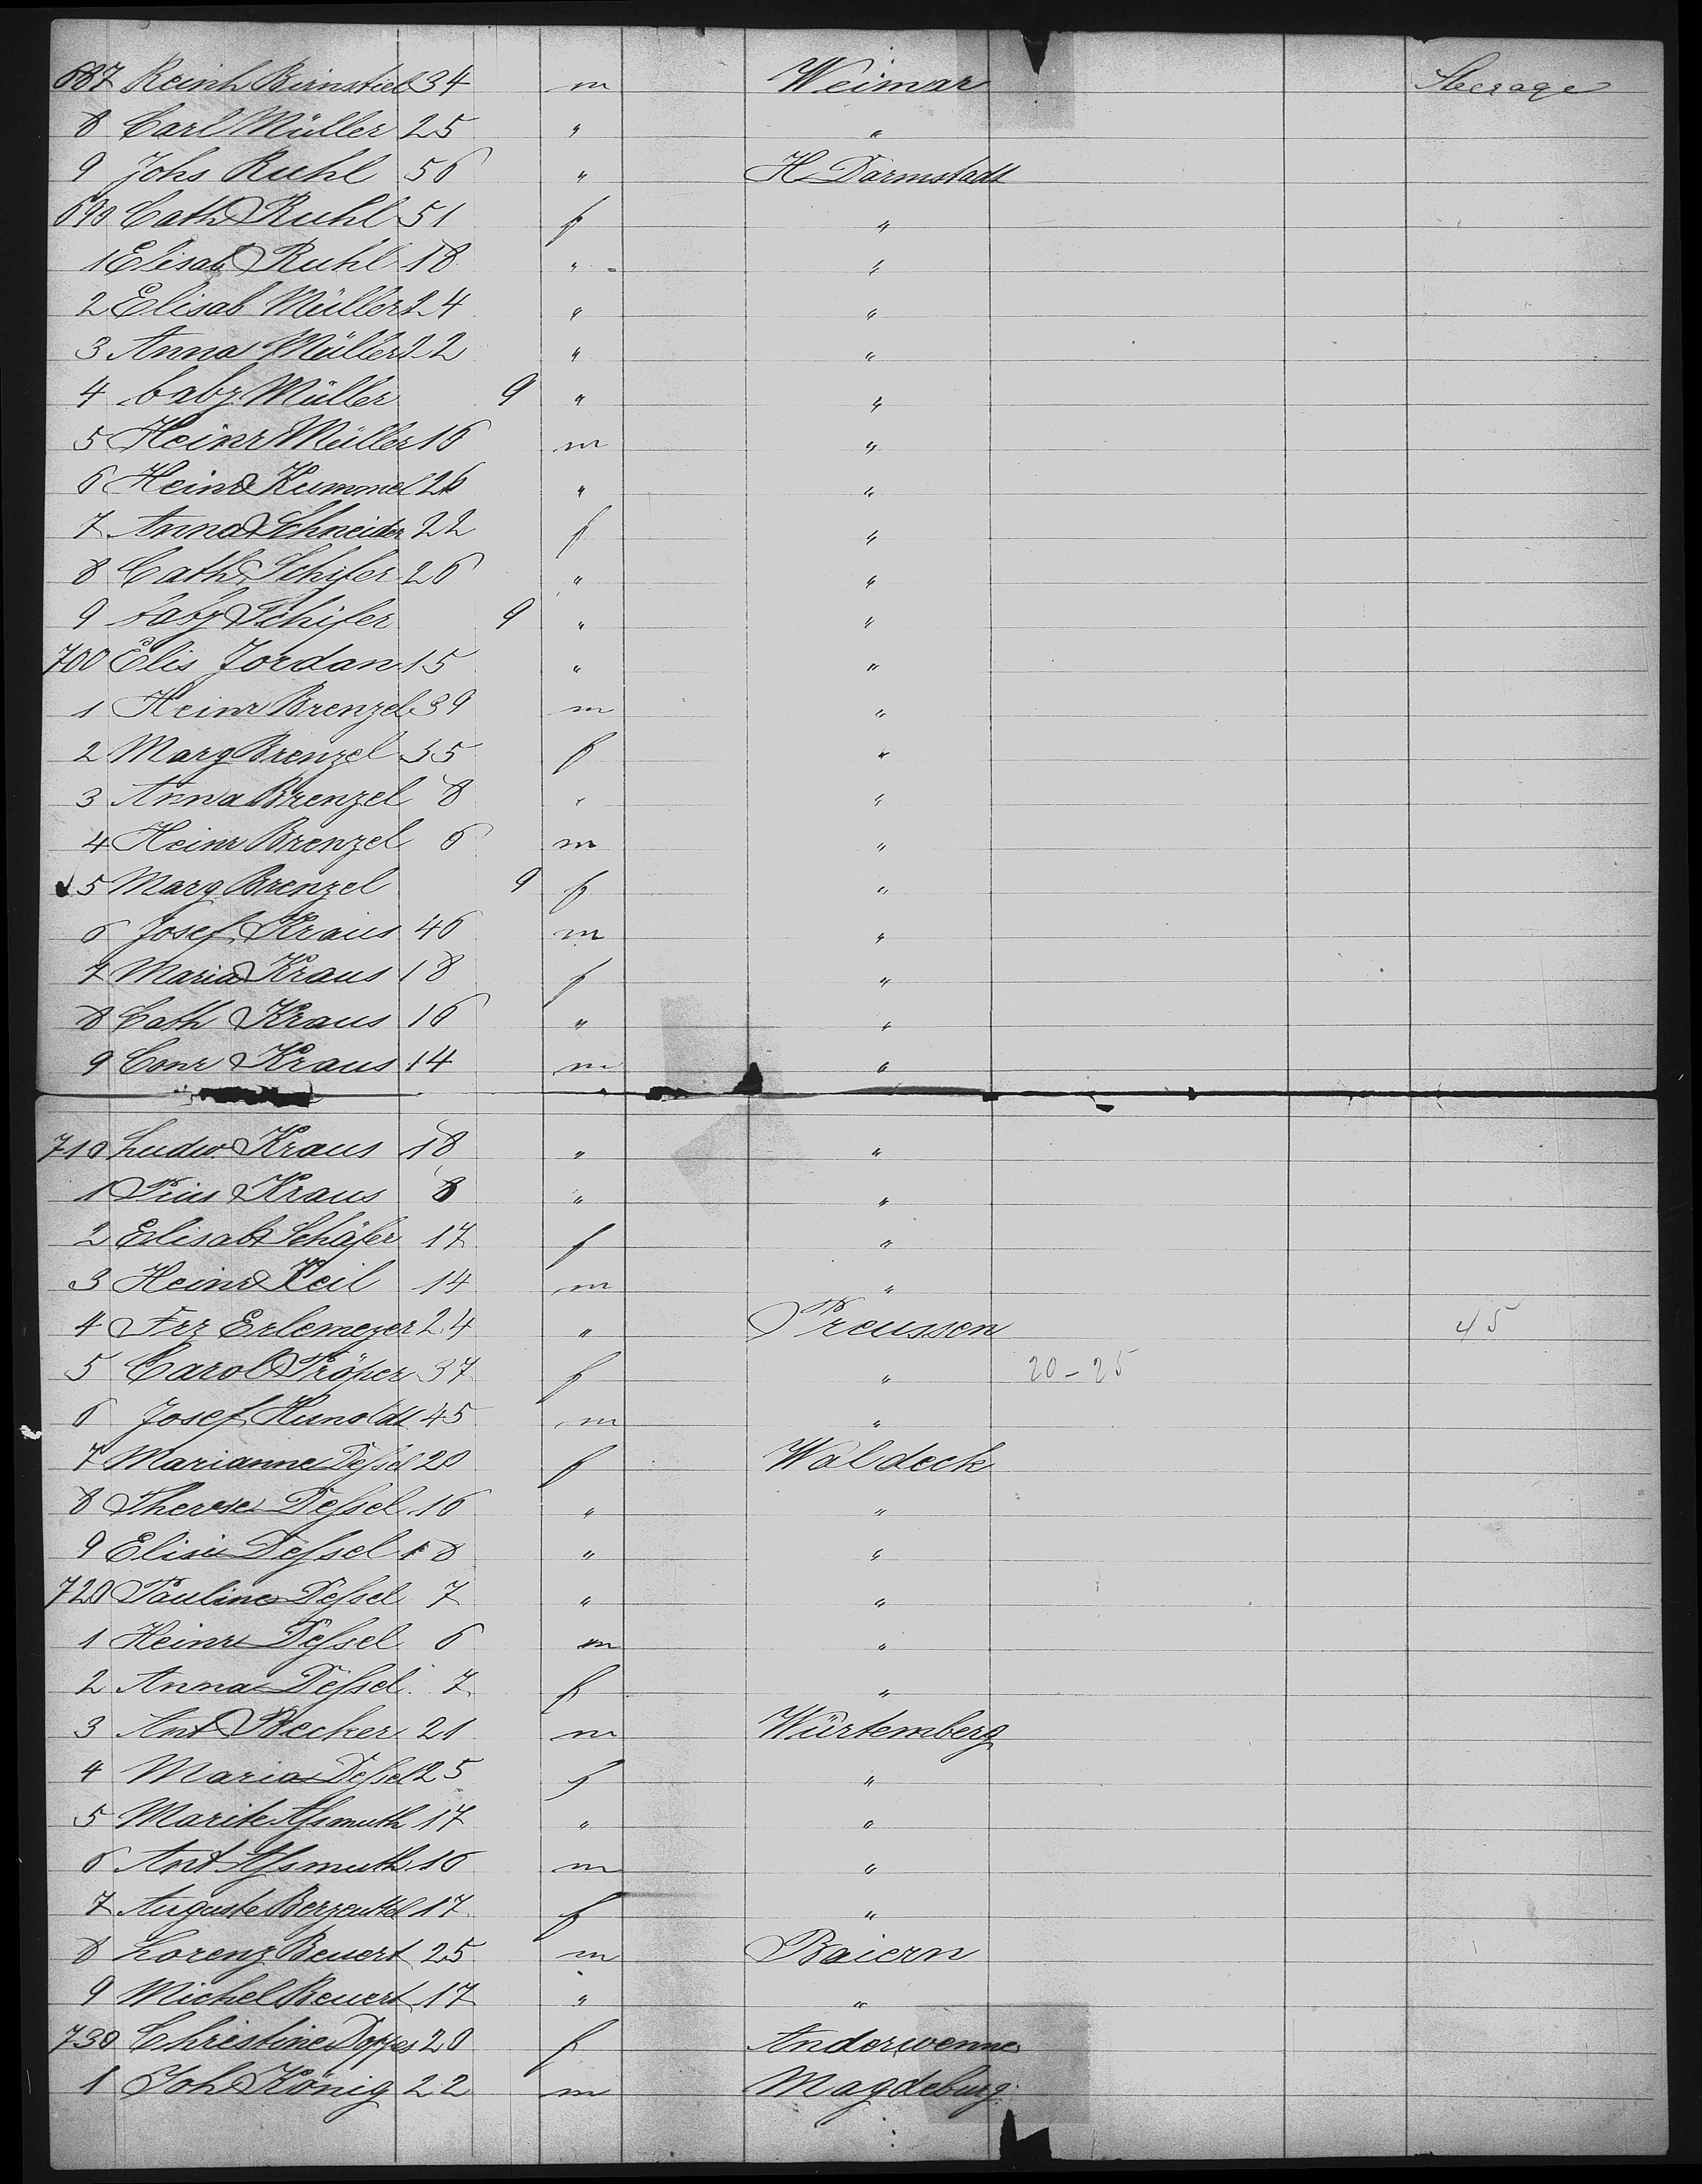 687 Reinh Birnstiel 34 m Weimar Steerage
8 Carl Müller 25 " "
9 Johs Ruhl 56 " H Darmstadt
690 Cath Ruhl 51 f "
1 Elisab Ruhl 18 " "
2 Elisab Müller 24 " "
3 Anna Müller 22 " "
4 baby Müller 9 " "
5 Heinr Müller 16 m "
6 Heinr Kummel 26 " "
7 Anna Schneider 22 f "
8 Cath Schifer 26 " "
9 baby Schifer 9 " "
700 Elis Jordan 15 " "
1 Heinr Brenzel 39 m "
2 Marg Brenzel 35 f "
3 Anna Brenzel 8 " "
4 Heinr Brenzel 6 m "
5 Marg Brenzel 9 f "
6 Josef Kraus 46 m "
7 Maria Kraus 18 f "
8 Cath Kraus 16 " "
9 Conr Kraus 14 m "
710 Ludw. Kraus 18 " "
1 Pius Kraus 8 " "
2 Elisab Schäfer 17 f "
3 Heinr Keil 14 m "
4 Frz Erlemeyer 24 " Preussen 45
5 Carol Pröper 37 f " 20-25
6 Josef Hunoldt 45 m "
7 Marianne Dessel 20 f Waldeck
8 Therese Dessel 16 " "
9 Elise Dessel 18 " "
720 Pauline Dessel 7 " "
1 Heinr Dessel 6 m "
2 Anna Dessel 7 f "
3 Ant Becker 21 m Würtemberg
4 Maria Dessel 25 f "
5 Marite Assmuth 17 " "
6 Ant Assmuth 16 m "
7 Auguste 17 f "
8 Lorenz Beuert 25 m Baiern
9 Michel Beuert 17 " "
730 Christine 20 f Anderwenne
1 Joh König 22 m Magdeburg